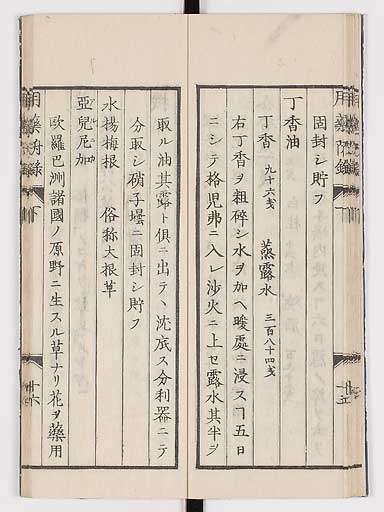 固封シ貯フ
丁香油
丁香 九十六戔 蒸露水 三百八十四戔
右丁香ヲ粗碎シ水ヲ加ヘ暖處ニ浸スヿ五日
ニシテ格児弗ニ入レ沙火ニ上セ露水其半ヲ
取ル油其露ト俱ニ出テヽ沈底ス分利器ニテ
分取シ硝子壜ニ固封シ貯フ
水楊梅根 俗称大根草
亞兒尼加
欧羅巴洲諸國ノ原野ニ生スル草ナリ花ヲ藥用
下
十六
十五